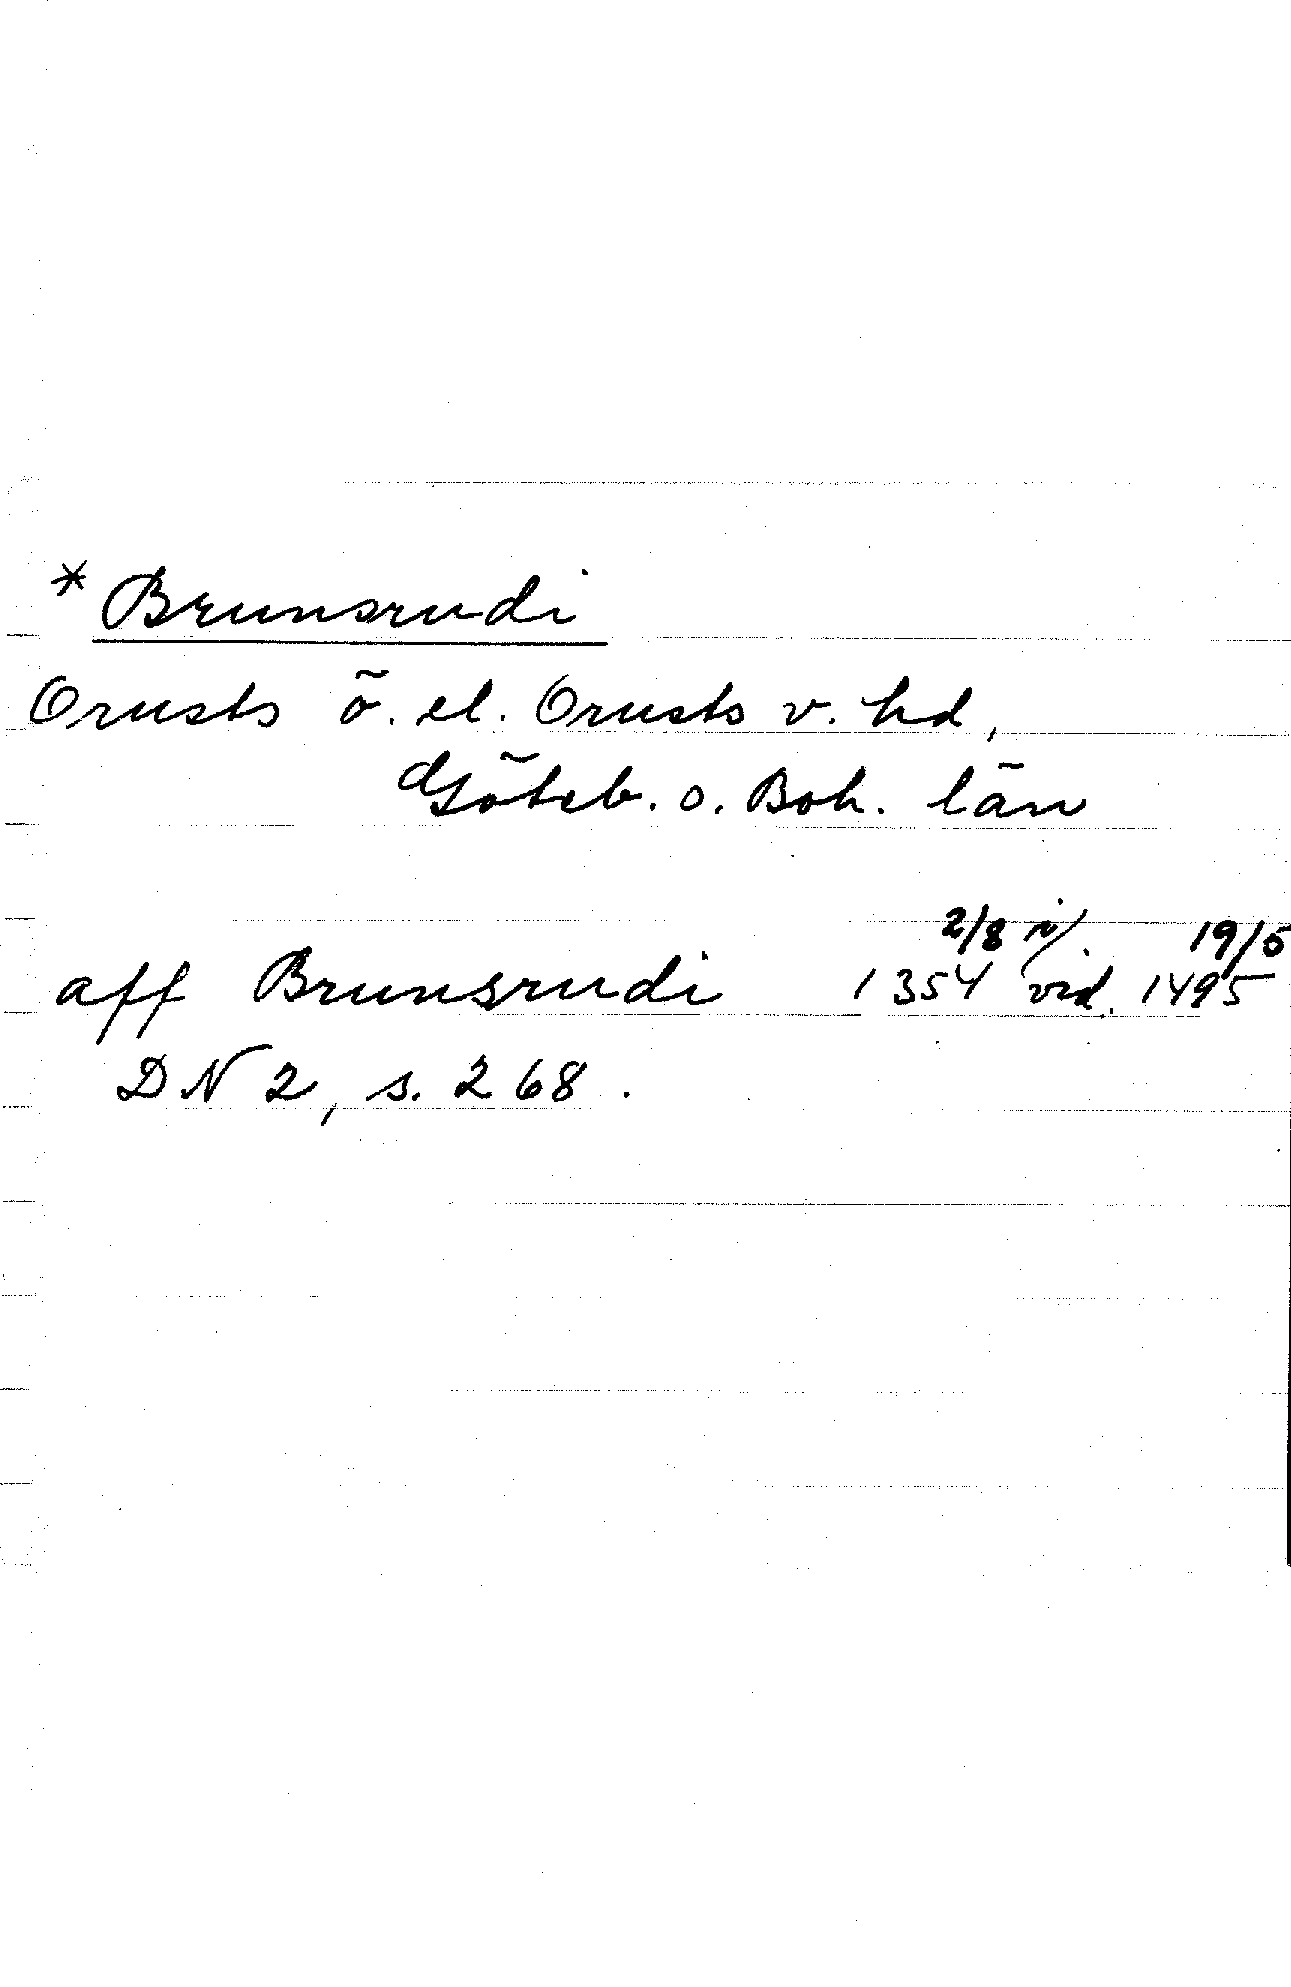 * Brunsrudi
Orusts ö. el. Orusts v. hd,
Göteb. o. Boh. län
aff Brunsrudi 2/8 1354 i vid. 19/5 1495
DN 2, s. 268.